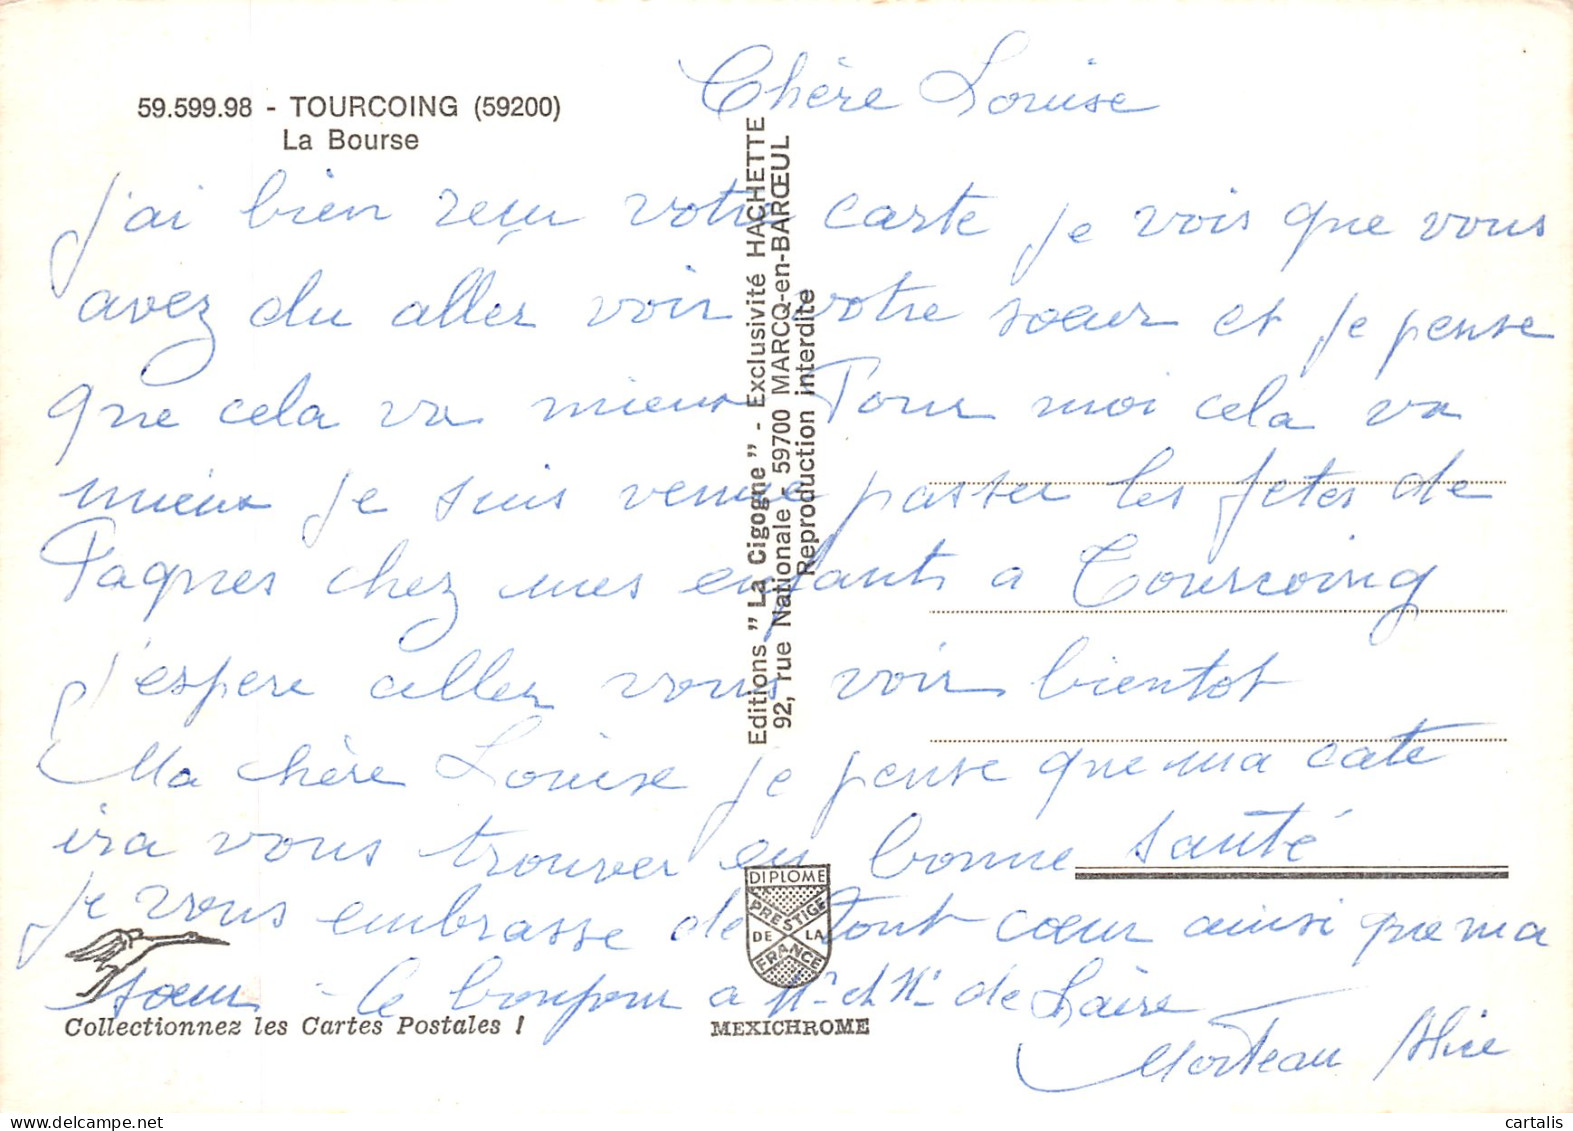 59.599.98 - TOURCOING (59200)
La Bourse
Chère Louise
j'ai bien reçu votre carte je vois que vous
avez du aller voir votre sœur et je pense
que cela va mieux Pour moi cela va
mieux je suis venue passer les fetes de
Paques chez mes enfants a Tourcoing
j'espere aller vous voir bientot
Ma chère Louise je pense que ma cate
ira vous trouver en bonne santé
je vous embrasse de tout cœur ainsi que ma
sœur - le bonjour a Mr et Me de Laire
Morteau Alice
Editions "La Cigogne" - Exclusivité HACHETTE
92, rue Nationale - 59700 MARCQ-en-BARŒUL
Reproduction interdite
DIPLOME
PRESTIGE
DE LA
FRANCE
Collectionnez les Cartes Postales !
MEXICHROME
cartalis